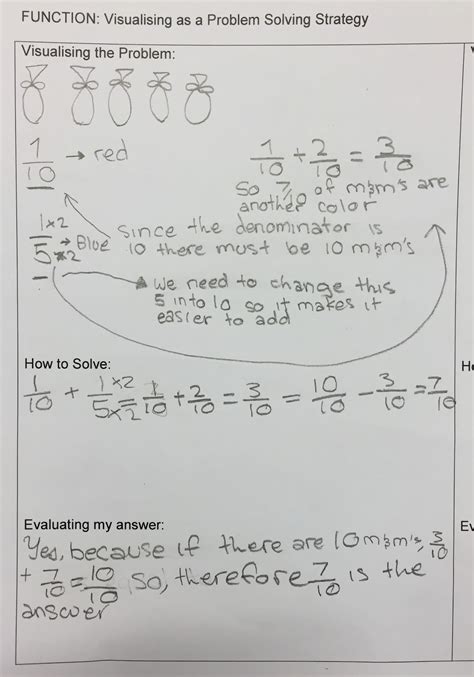 FUNCTION: Visualising as a Problem Solving Strategy
Visualising the Problem:
1/10 → red
1/10 + 2/10 = 3/10
So 7/10 of m&m's are
another color
1x2/5x2 → Blue
Since the denominator is
10 there must be 10 m&m's
we need to change this
5 into 10 so it makes it
easier to add
How to Solve:
1/10 + 1x2/5x2 = 1/10 + 2/10 = 3/10 = 10/10 - 3/10 = 7/10
Evaluating my answer:
Yes, because if there are 10 m&m's, 3/10
+ 7/10 = 10/10 So, therefore 7/10 is the
answer